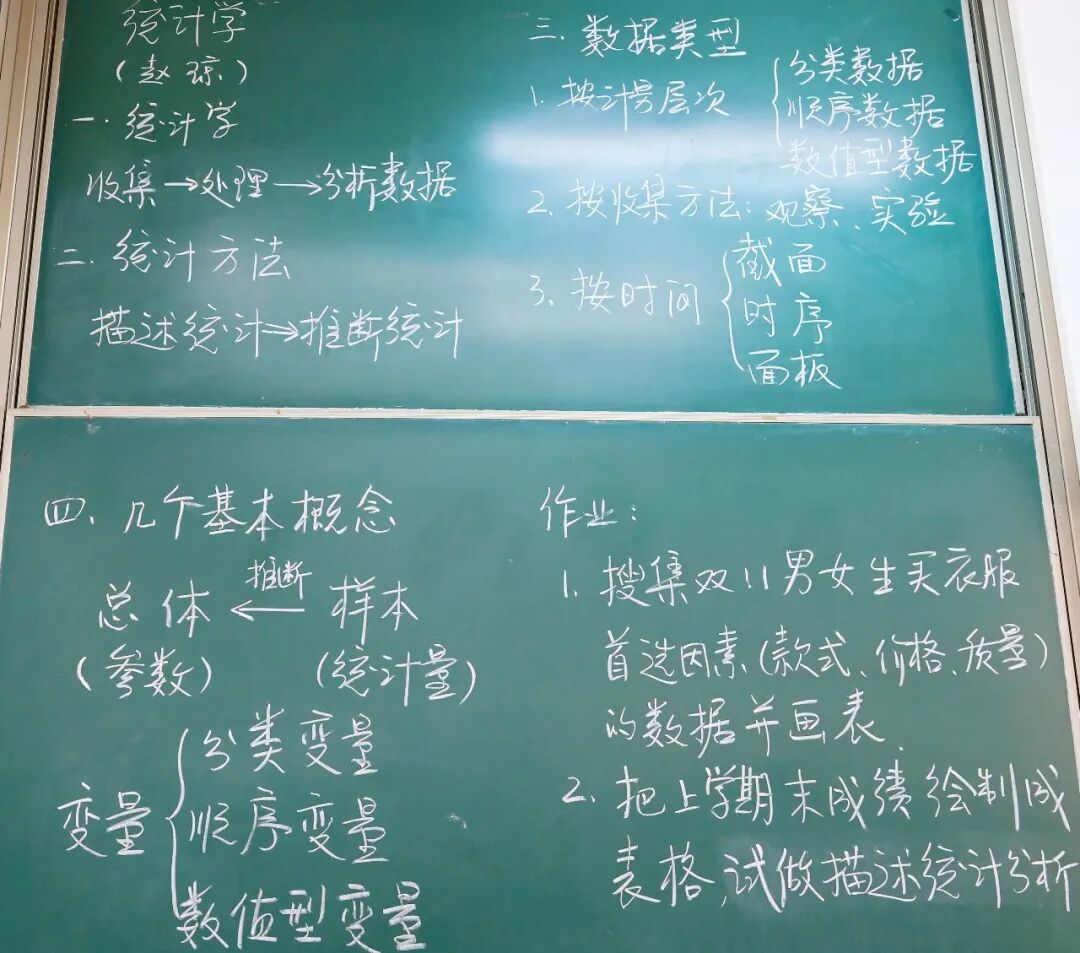 统计学
(赵琼)
一.统计学
收集→处理→分析数据
二.统计方法
描述统计⇒推断统计
三.数据类型
1.按计量层次
分类数据
顺序数据
数值型数据
2.按收集方法:观察、实验
3.按时间
截面
时序
面板
四、几个基本概念
总体 ←推断 样本
(参数) (统计量)
变量
分类变量
顺序变量
数值型变量
作业:
1.搜集双11男女生买衣服
首选因素(款式、价格、质量)
的数据并画表.
2.把上学期末成绩绘制成
表格,试做描述统计分析